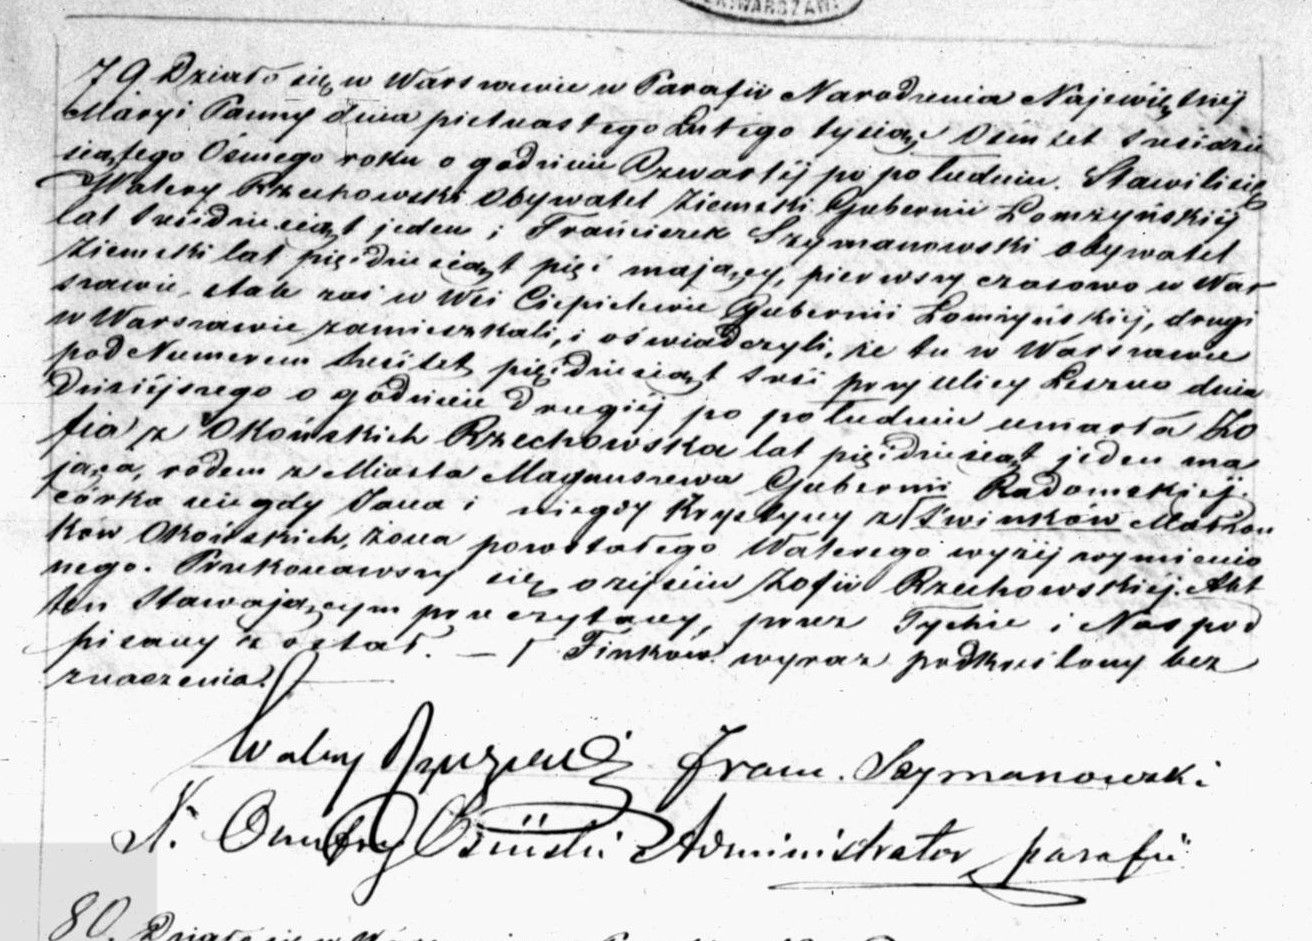 WARSZAW
79 Działo się w Warszawie w Parafii Narodzenia Najświętszéj
Maryi Panny dnia pietnastego Lutego tysiąc Osimset sześdzie
siątego Osmego roku o godzinie Czwartéj po południu. Stawili się
Walery Rzechowski Obywatel Ziemski Gubernii Łomżyńskiéj
lat trzidziesiąt jeden i Franciszek Szymanowski obywatel
Ziemski lat pięidziesiąt pięć mający, pierwszy czasowo w War
szawie, stale zaś w Wsi Gubernii Łomżyńskiéj, drugi
w Warszawie zamieszkali, i oświadczyli, że tu w Warszawie
pod Numerem sześset pięidziesiąt trzi przy ulicy Leszno dnia
Dzisiéjszego o godzinie Drugiéj po południu umarła Zo
fia z Okońskich Rzechowska lat pięidziesiąt jeden ma
jącą, rodem z Miasta Magnuszewa Gubernii Radomskiéj.
córka niegdy Jana i niegdy Krystyny z Świnków Małżon
ków Okońskich, żona pozostałego Walerego wyżéj wymienio
nego. Przekonawszy się o zejściu Zofii Rzechowskiéj. Akt
ten Stawającym przeczytany, przez Tychże i Nas pod
pisany został. — Finków wyraz podkreślony bez
znaczenia.
Walery Fran. Szymanowski
X. Onufry Administrator parafii
80. Działo się w Warszawie